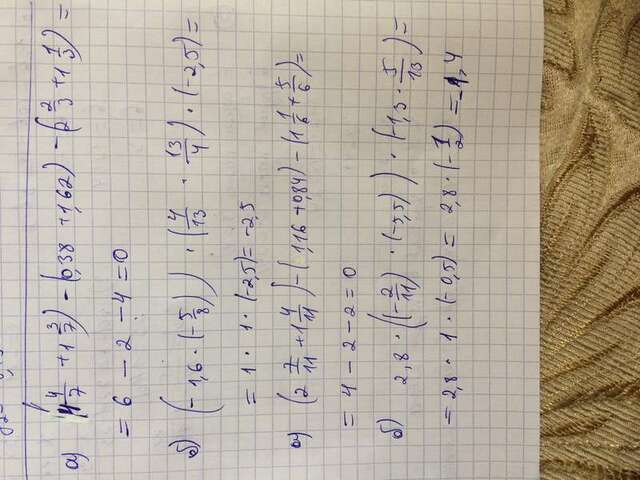 а) (4 4/7 + 1 3/7) - (0,38 + 1,62) - (2 2/3 + 1 1/3) =
= 6 - 2 - 4 = 0
б) (- 1,6 · (- 5/8)) · (4/13 · 13/4) · (-2,5) =
= 1 · 1 · (-2,5) = -2,5
а) (2 7/11 + 1 4/11) - (1,16 + 0,84) - (1 1/6 + 5/6) =
= 4 - 2 - 2 = 0
б) 2,8 · ((- 2/11) · (-5,5)) · (-1,3 · 5/13) =
= 2,8 · 1 · (-0,5) = 2,8 · (- 1/2) = -1,4